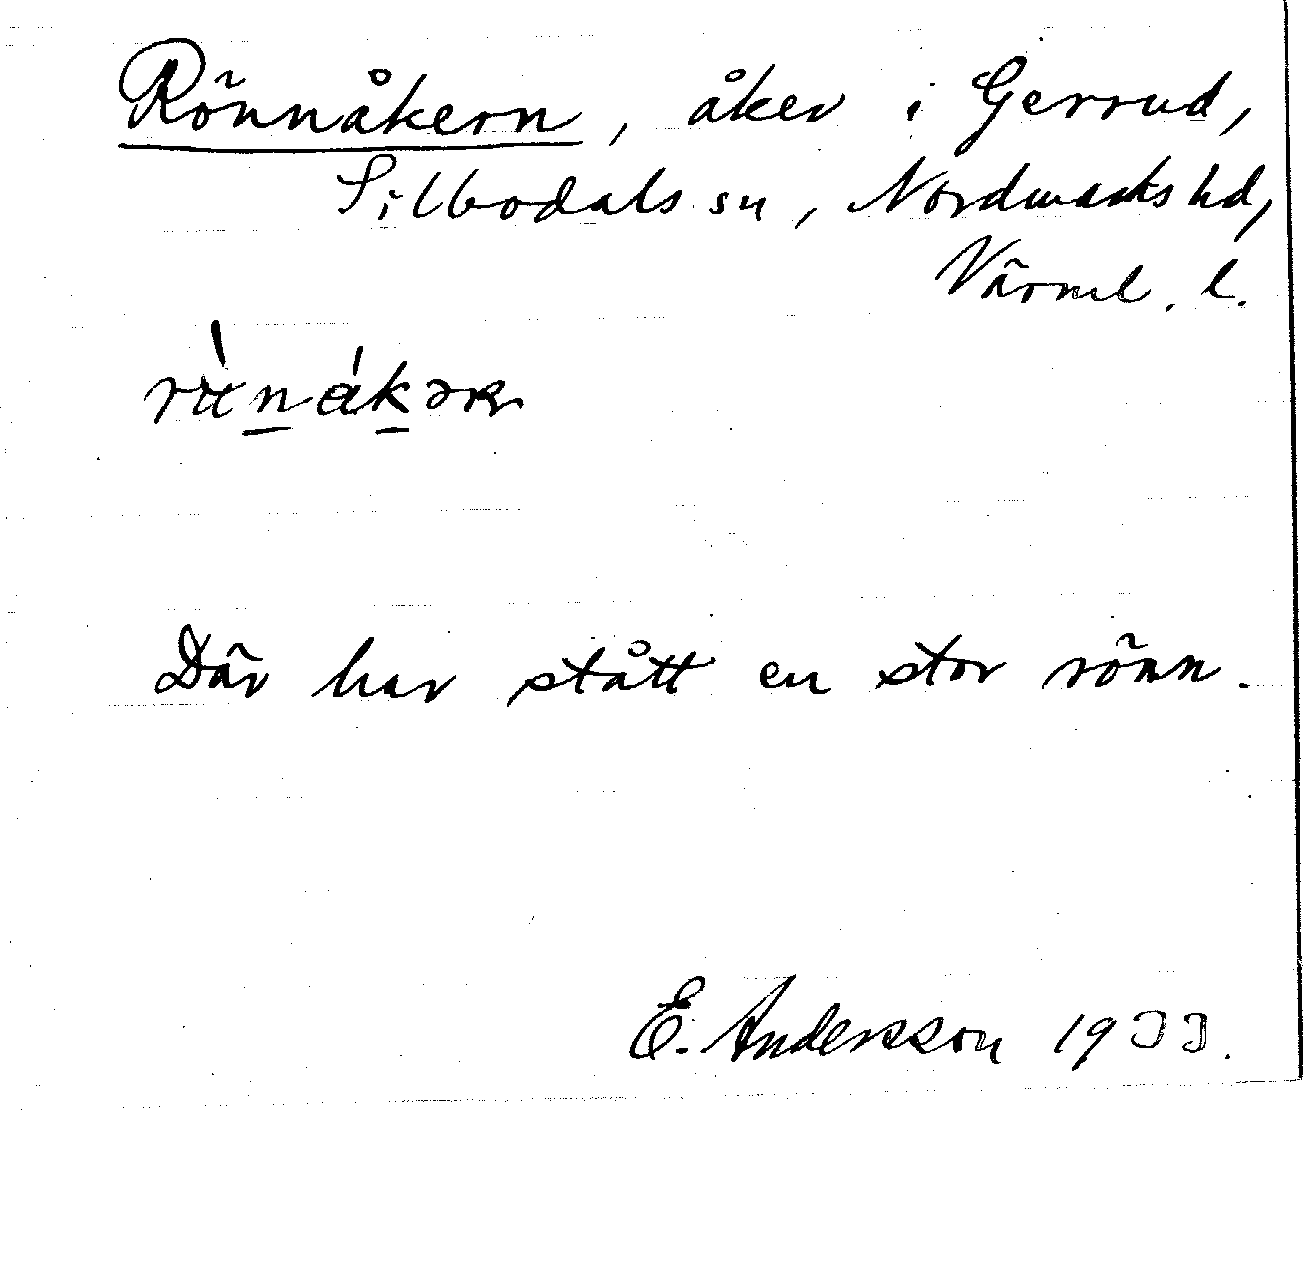 Rönnåkern, åker i Gerrud,
Silbodals sn, Nordmarks hd,
Värml. l.
Där har stått en stor rönn.
E. Andersson 1933.